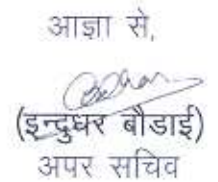 आज्ञा से,
(इन्दुधर बौडाई)
अपर सचिव